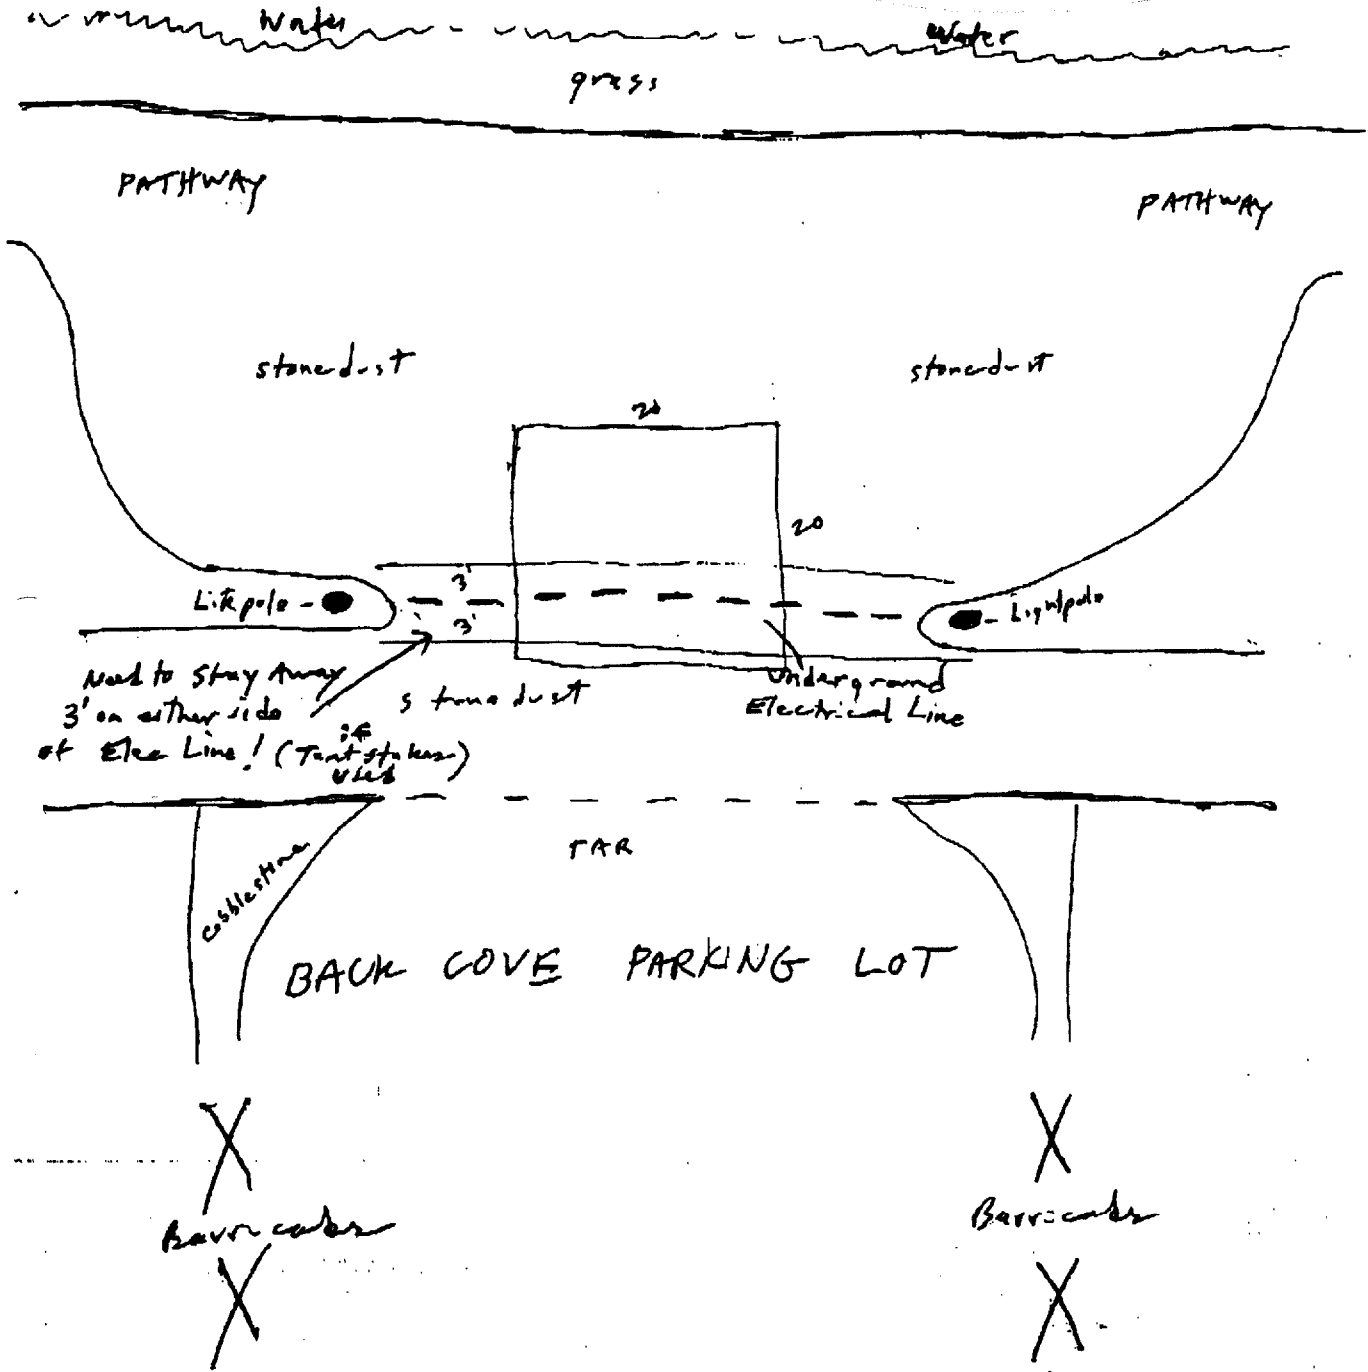 Water
Water
grass
PATHWAY
PATHWAY
stonedust
stonedust
20
20
3'
3'
Litepole
Lightpole
Need to Stay Away
3' on either side
of Elec Line! (Tent stakes)
if
used
stonedust
Underground
Electrical Line
TAR
cobblestone
BACK COVE PARKING LOT
Barricades
Barricades